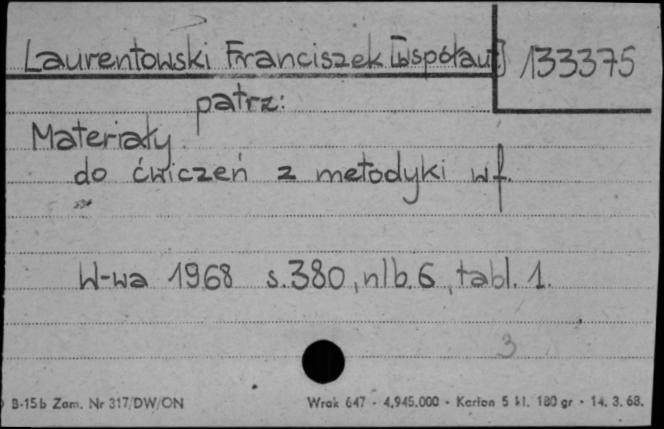 Laurentowski Franciszek [współaut]
133375
patrz:
Materiały
do ćwiczeń z metodyki wf.
W-wa 1968 s.380, nlb.6, tabl. 1.
3
B-15b Zam. Nr 317/DW/ON
Wrak 647 - 4.945.000 - Karton 5 kl. 180 gr - 14. 3. 68.